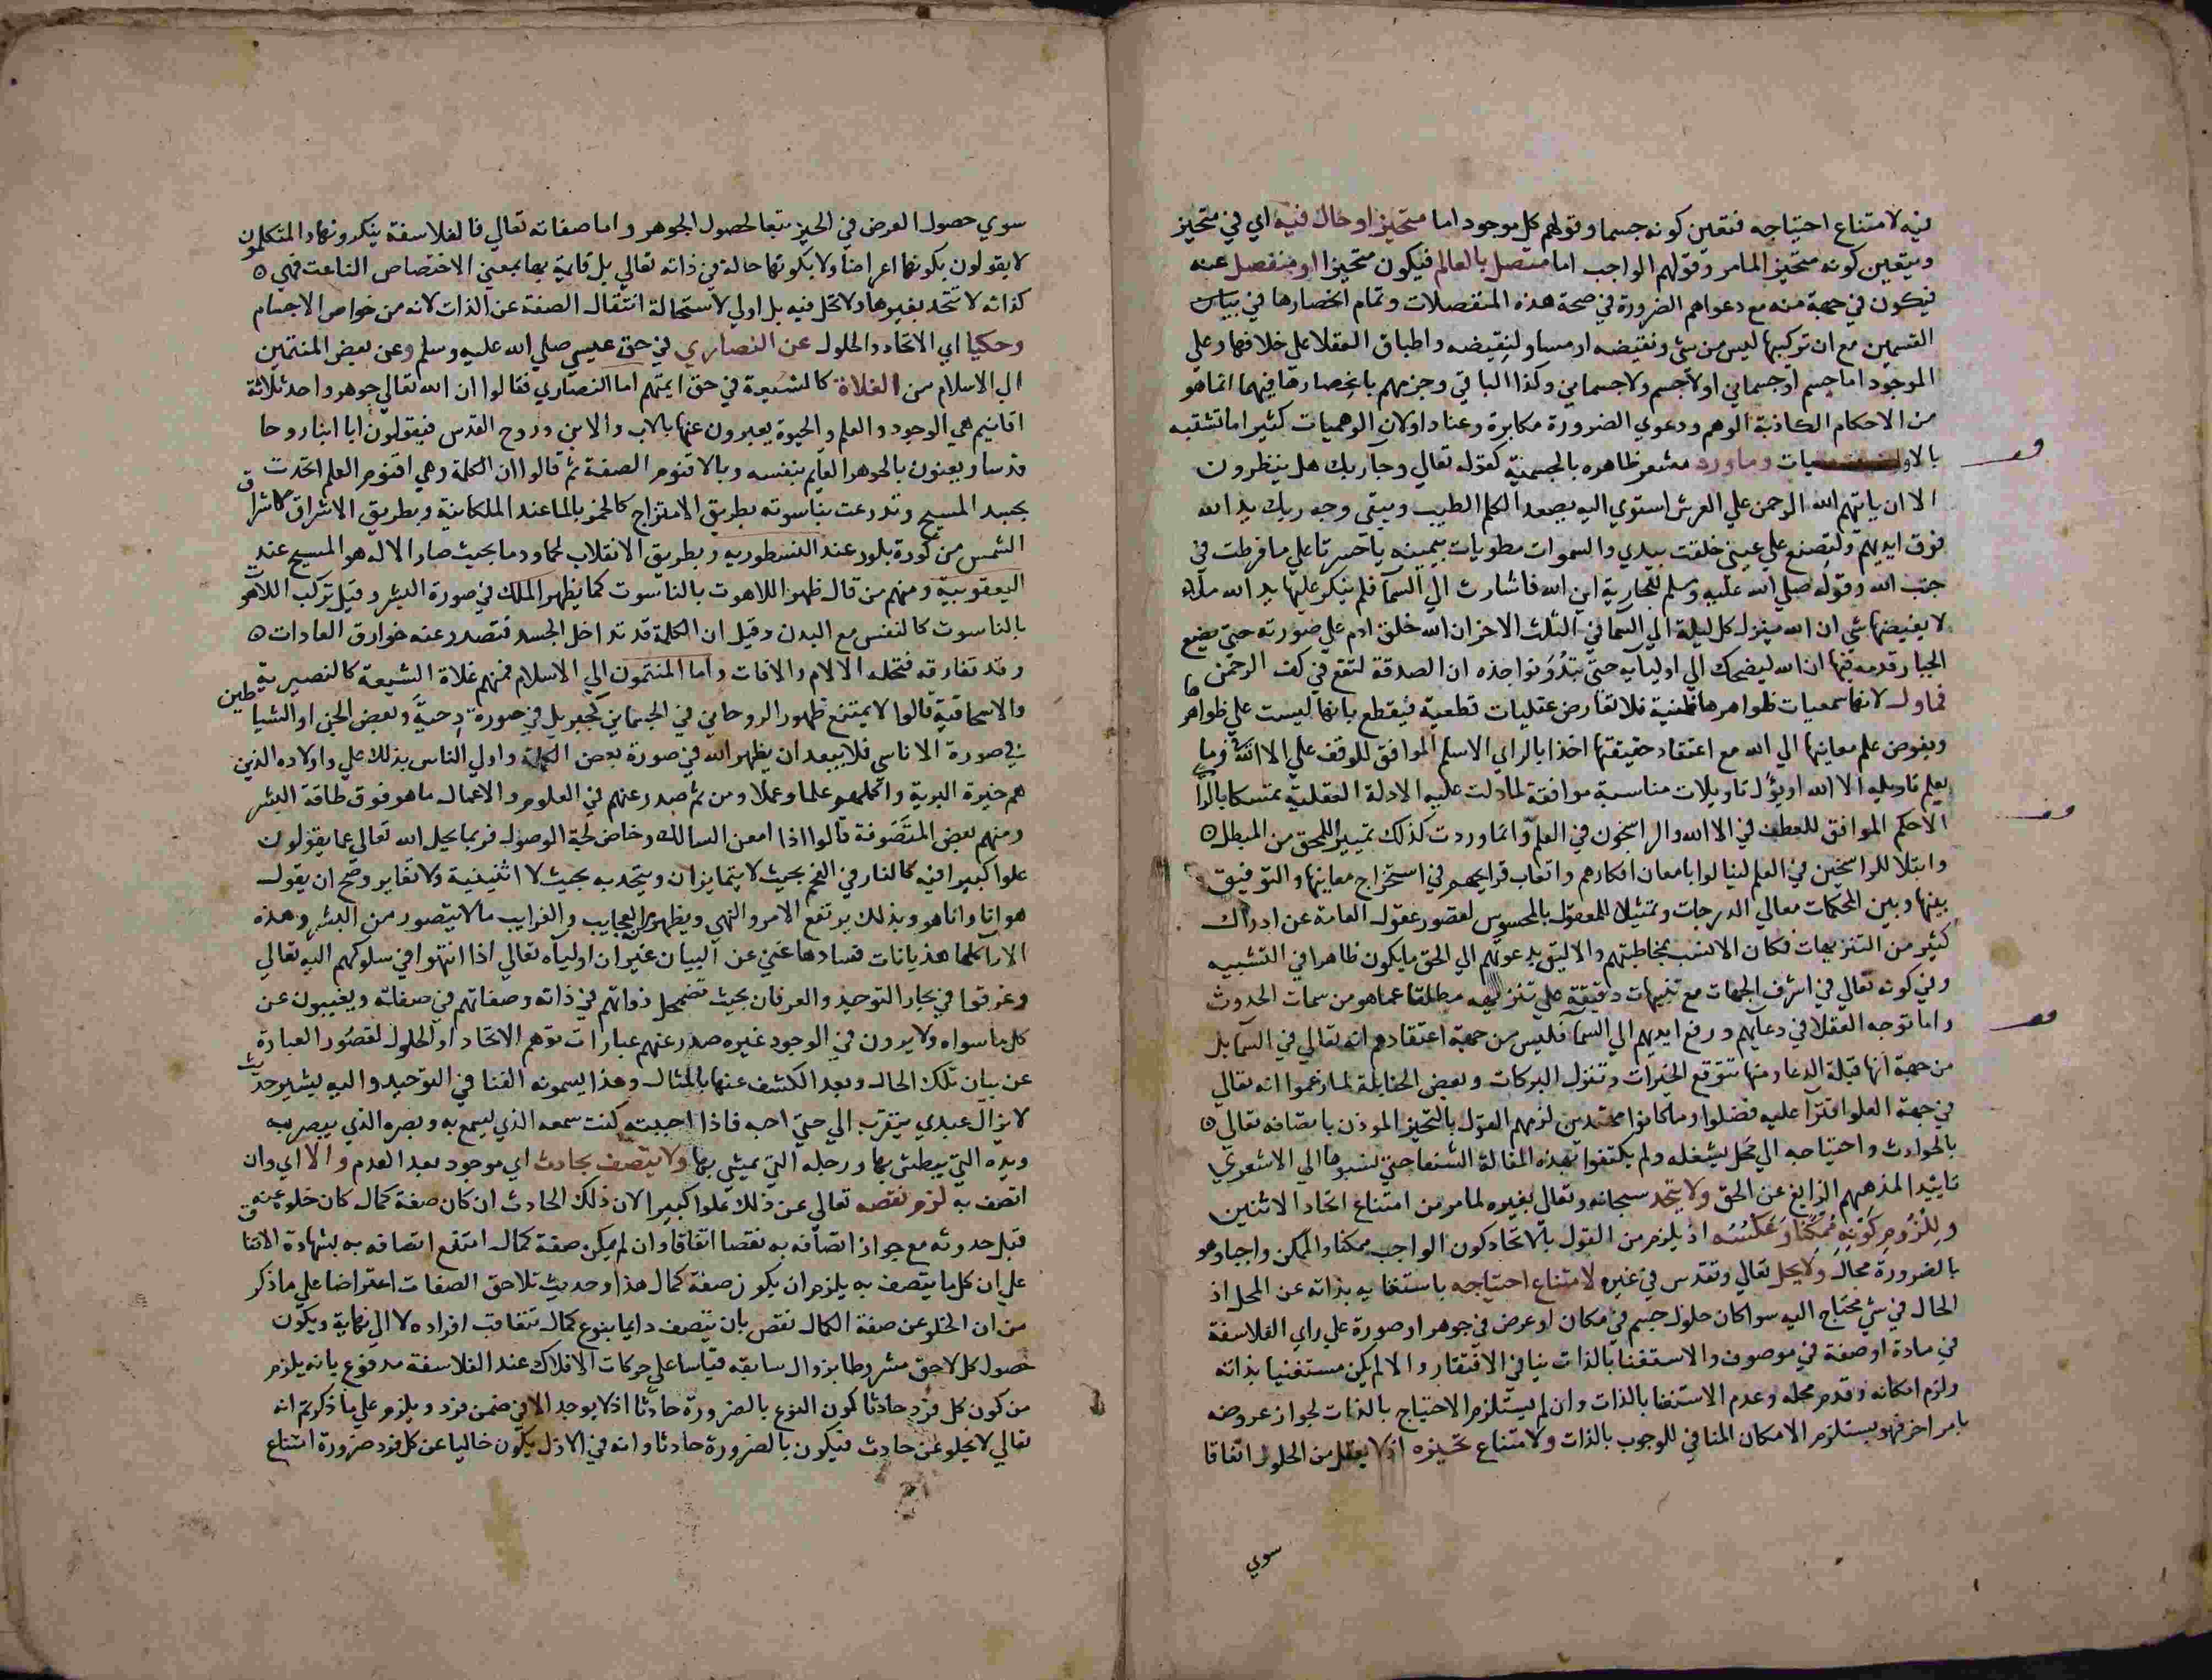 فيه لامتناع احتياجه فتعين كونه جسما وقولهم كل موجود اما متحيز او حال فيه اي في متحيز
ويتعين كونه متحيزا لما مر وقولهم الواجب اما متصل بالعالم فيكون متحيزا او منفصل عنه
فيكون في جهة منه مع دعواهم الضرورة في صحة هذه المنفصلات وتمام انحصارها في بيان
القسمين مع ان تركيبها ليس من شي ونقيضه او مساو لنقيضه واطباق العقلا علي خلافها وعلي
الموجود اما جسم او جسماني او لا جسم ولا جسماني وكذا الباقي وجزمهم بانحصارها فيهما انما هو
من الاحكام الكاذبة الوهم ودعوي الضرورة مكابرة وعنادا ولان الوهميات كثيرا ما تشتبه
بالاوليات وما ورد مشعر ظاهره بالجسمية كقوله تعالي وجا ربك هل ينظرون
الا ان ياتيهم الله الرحمن علي العرش استوي اليه يصعد الكلم الطيب ويبقي وجه ربك يد الله
فوق ايديهم ولتصنع علي عيني خلقت بيدي والسموات مطويات بيمينه يا حسرتا علي ما فرطت في
جنب الله وقوله صلي الله عليه وسلم للجارية اين الله فاشارت الي السما فلم ينكر عليها يد الله ملاء
لا يغيضها شي ان الله ينزل كل ليلة الي السما في الثلث الاخر ان الله خلق ادم علي صورته حتي يضع
الجبار قدمه فيها ان الله ليضحك الي اوليايه حتي تبدو نواجذه ان الصدقة لتقع في كف الرحمن
فماول لانها سمعيات ظواهرها ظنية فلا تعارض عقليات قطعية فيقطع بانها ليست علي ظواهرها
ويفوض علم معانيها الي الله مع اعتقاد حقيقتها اخذا بالراي الاسلم الموافق للوقف علي الا الله وما
يعلم تاويله الا الله او يؤل تاويلات مناسبة موافقة لما دلت عليه الادلة العقلية تمسكا بالراي
الاحكم الموافق للعطف في الا الله والراسخون في العلم وانما وردت كذلك تمييزا للمحق من المبطل
وابتلا للراسخين في العلم لينالوا بامعان افكارهم واتعاب قرايحهم في استخراج معانيها والتوفيق
بينها وبين المحكمات معالي الدرجات وتمثيلا للمعقول بالمحسوس لقصور عقول العامة عن ادراك
كثير من التنزيهات فكان الانسب بمخاطبتهم والاليق بدعوتهم الي الحق ما يكون ظاهرا في التشبيه
وفي كونه تعالي في اشرف الجهات مع تنبيهات دقيقة علي تنزيهه مطلقا عما هو من سمات الحدوث
واما توجه العقلا في دعايهم ورفع ايديهم الي السما فليس من جهة اعتقادهم انه تعالي في السما بل
من جهة انها قبلة الدعا ومنها تتوقع الخيرات وتنزل البركات وبعض الحنابلة لما زعموا انه تعالي
في جهة العلو افترآ عليه فضلوا وما كانوا مهتدين لزمهم القول بالتحيز الموذن باتصافه تعالي
بالحوادث واحتياجه الي محل يشغله ولم يكتفوا بهذه المقالة الشنعا حتي نسبوها الي الاشعري
تاييدا لمذهبهم الزايغ عن الحق ولا يتحد سبحانه وتعالي بغيره لما مر من امتناع اتحاد الاثنين
وللزوم كونه ممكنا وعكسه اذ يلزم من القول بالاتحاد كون الواجب ممكنا والممكن واجبا وهو
بالضرورة محال ولا يحل تعالي وتقدس في غيره لامتناع احتياجه باستغنايه بذاته عن المحل اذ
الحال في شي محتاج اليه سوا كان حلول جسم في مكان او عرض في جوهر او صورة علي راي الفلاسفة
في مادة او صفة في موصوف والاستغنا بالذات ينافي الافتقار والا لم يكن مستغنيا بذاته
ولزم امكانه وقدم محله وعدم الاستغنا بالذات وان لم يستلزم الاحتياج بالذات لجواز عروضه
بامر اخر فهو يستلزم الامكان المنافي للوجوب بالذات ولامتناع تحيزه اذ لا يعقل من الحلول اتفاقا
سوي
سوي حصول العرض في الحيز تبعا لحصول الجوهر واما صفاته تعالي فالفلاسفة ينكرونها والمتكلمون
لا يقولون بكونها اعراضا ولا بكونها حالة في ذاته تعالي بل قايمة بها بمعني الاختصاص الناعت فهي
كذاته لا تتحد بغيرها ولا تحل فيه بل اولي لاستحالة انتقال الصفة عن الذات لانه من خواص الاجسام
وحكيا اي الاتحاد والحلول عن النصاري في حق عيسي صلي الله عليه وسلم وعن بعض المنتمين
الي الاسلام من الغلاة كالشيعة في حق ايمتهم اما النصاري فقالوا ان الله تعالي جوهر واحد ثلاثة
اقانيم هي الوجود والعلم والحيوة يعبرون عنها بالاب والابن وروح القدس فيقولون ابا ابنا روحا
قدسا ويعنون بالجوهر القايم بنفسه وبالاقنوم الصفة ثم قالوا ان الكلمة وهي اقنوم العلم اتحدت
بجسد المسيح وتدرعت بناسوته بطريق الامتزاج كالخمر بالما عند الملكانية وبطريق الاشراق كاشراق
الشمس من كورة بلور عند النسطوريه وبطريق الانقلاب لحما ودما بحيث صار الاله هو المسيح عند
اليعقوبية ومنهم من قال ظهر اللاهوت بالناسوت كما يظهر الملك في صورة البشر وقيل تركب اللاهوت
بالناسوت كالنفس مع البدن وقيل ان الكلمة قد تداخل الجسد فتصدر عنه خوارق العادات
وقد تفارقه فتحله الالام والافات واما المنتمون الي الاسلام فمنهم غلاة الشيعة كالنصيرية
والاسحاقية قالوا لا يمتنع ظهور الروحاني في الجسماني كجبريل في صورة دحية وبعض الجن او الشياطين
في صورة الاناسي فلا يبعد ان يظهر الله في صورة بعض الكملة واولي الناس بذلك علي واولاده الذين
هم خيرة البرية واكملهم علما وعملا ومن ثم صدر عنهم في العلوم والاعمال ما هو فوق طاقة البشر
ومنهم بعض المتصوفة قالوا اذا امعن السالك وخاض لجة الوصول فربما يحل الله تعالي عما يقولون
علوا كبيرا فيه كالنار في الفحم بحيث لا يتمايزان ويتحد به بحيث لا اثنينية ولا تغاير وصح ان يقول
هو انا وانا هو وبذلك يرتفع الامر والنهي ويظهر من العجايب والغرايب ما لا يتصور من البشر وهذه
الارا كلها هذيانات فسادها غني عن البيان غير ان اولياه تعالي اذا انتهوا في سلوكهم اليه تعالي
وغرقوا في بحار التوحيد والعرفان بحيث تضمحل ذواتهم في ذاته وصفاتهم في صفاته ويغيبون عن
كل ما سواه ولا يرون في الوجود غيره صدر عنهم عبارات توهم الاتحاد او الحلول لقصور العبارة
عن بيان تلك الحال وبعد الكشف عنها بالمثال وهذا يسمونه الفنا في التوحيد واليه يشير حديث
لا يزال عبدي يتقرب الي حتي احبه فاذا احببته كنت سمعه الذي يسمع به وبصره الذي يبصر به
ويده التي يبطش بها ورجله التي يمشي بها ولا يتصف بحادث اي موجود بعد العدم والا اي وان
اتصف به لزم نقصه تعالي عن ذلك علوا كبيرا لان ذلك الحادث ان كان صفة كمال كان خلوه عنه
قبل حدوثه مع جواز اتصافه به نقصا اتفاقا وان لم يكن صفة كمال امتنع اتصافه به لشهادة الاتفاق
علي ان كل ما يتصف به يلزم ان يكون صفة كمال هذا وحديث تلاحق الصفات اعتراضا علي ما ذكر
من ان الخلو عن صفة الكمال نقص بان يتصف دايما بنوع كمال تتعاقب افراده لا الي نهاية ويكون
حصول كل لاحق مشروطا بزوال سابقه قياسا علي حركات الافلاك عند الفلاسفة مدفوع بانه يلزم
من كون كل فرد حادثا كون النوع بالضرورة حادثا اذ لا يوجد الا في ضمن فرد ويلزم علي ما ذكرتم انه
تعالي لا يخلو عن حادث فيكون بالضرورة حادثا وانه في الازل يكون خاليا عن كل فرد ضرورة امتناع